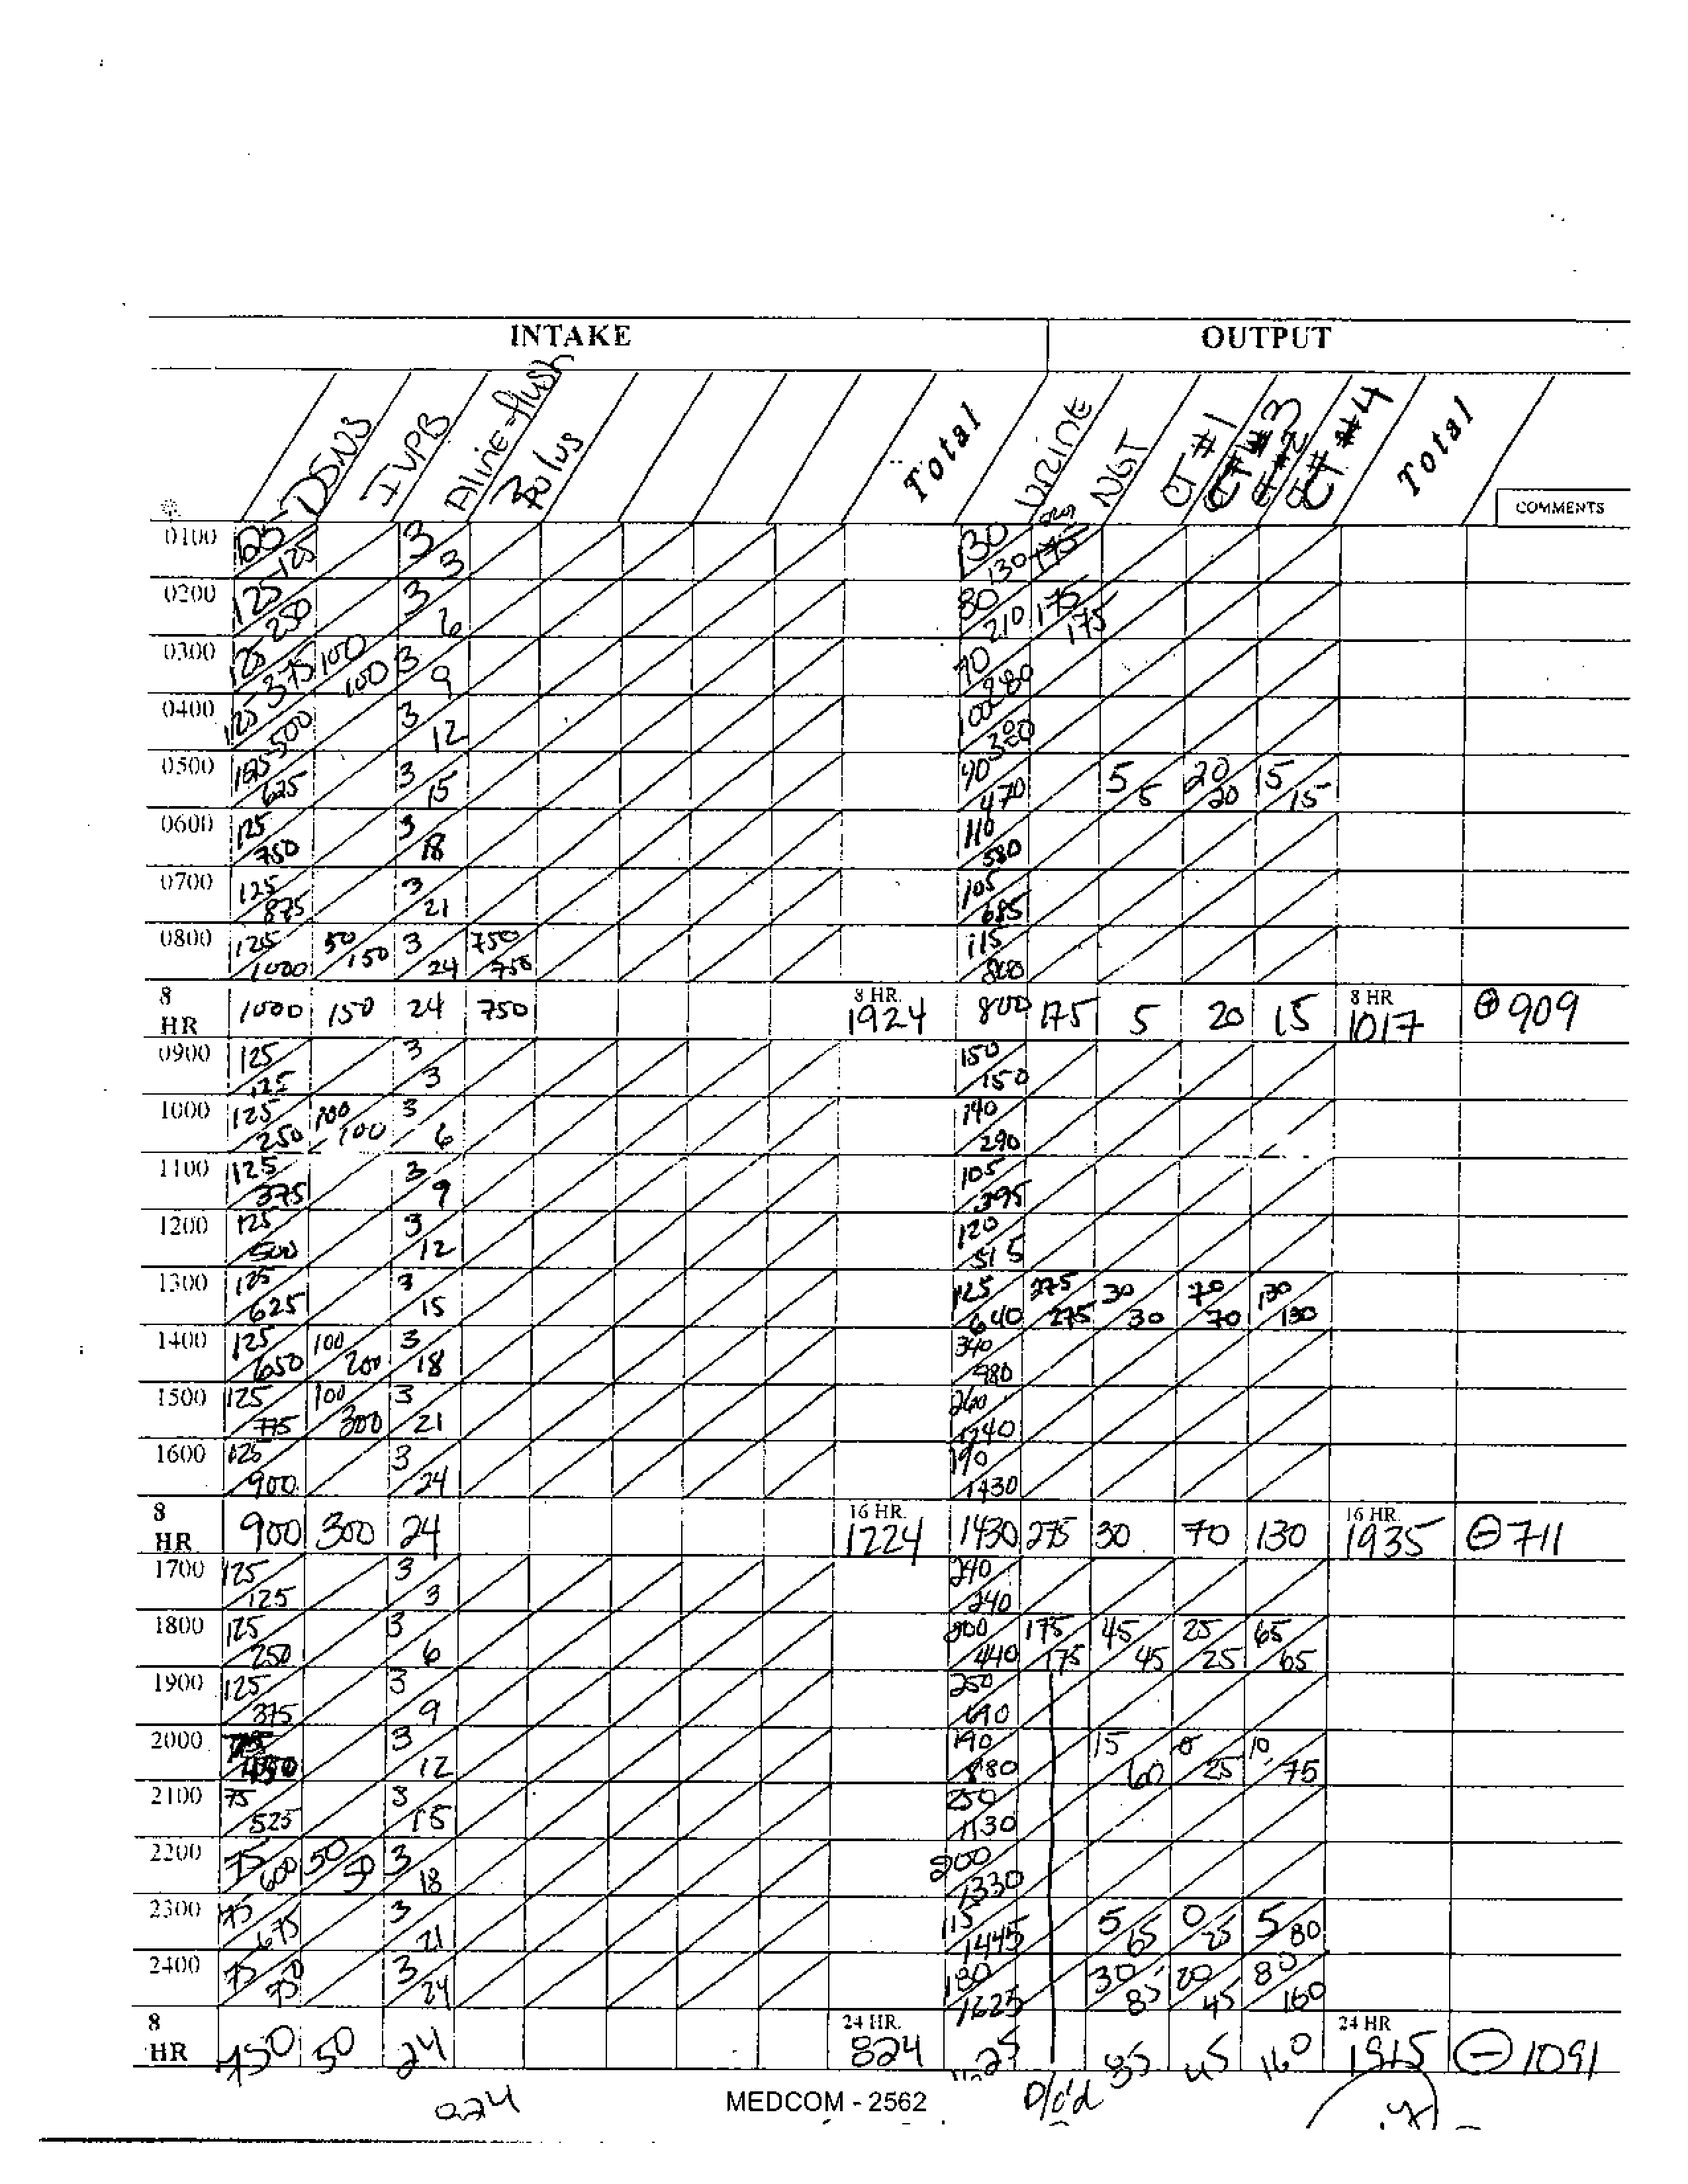 INTAKE OUTPUT
D5NS IVPB Aline-flush Bolus Total Urine NGT CT #1 CT #3 CT #4 Total
COMMENTS
0100 125 125 3 3 130 130
0200 125 250 3 6 80 210 175 175
0300 125 375 100 100 3 9 70 280
0400 125 500 3 12 100 380
0500 125 625 3 15 90 470 5 5 20 20 15 15
0600 125 750 3 18 110 580
0700 125 875 3 21 105 685
0800 125 1000 50 150 3 24 750 750 115 800
8 HR 1000 150 24 750 8 HR. 1924 800 175 5 20 15 8 HR 1017 ⊕ 909
0900 125 125 3 3 150 150
1000 125 250 100 100 3 6 140 290
1100 125 375 3 9 105 395
1200 125 500 3 12 120 515
1300 125 625 3 15 125 640 275 275 30 30 70 70 130 130
1400 125 650 100 200 3 18 340 980
1500 125 775 100 300 3 21 260 1240
1600 125 900 3 24 190 1430
8 HR 900 300 24 16 HR. 1224 1430 275 30 70 130 16 HR. 1935 ⊖ 711
1700 125 125 3 3 240 240
1800 125 250 3 6 200 440 175 175 45 45 25 25 65 65
1900 125 375 3 9 250 690
2000 75 450 3 12 190 880 15 60 0 25 10 75
2100 75 525 3 15 250 1130
2200 75 600 50 50 3 18 200 1330
2300 75 675 3 21 115 1445 5 65 0 25 5 80
2400 75 750 3 24 180 1625 30 85 20 45 80 160
8 HR 750 50 24 24 HR. 824 85 45 160 24 HR 1915 ⊖ 1091
824 MEDCOM - 2562 D/c'd